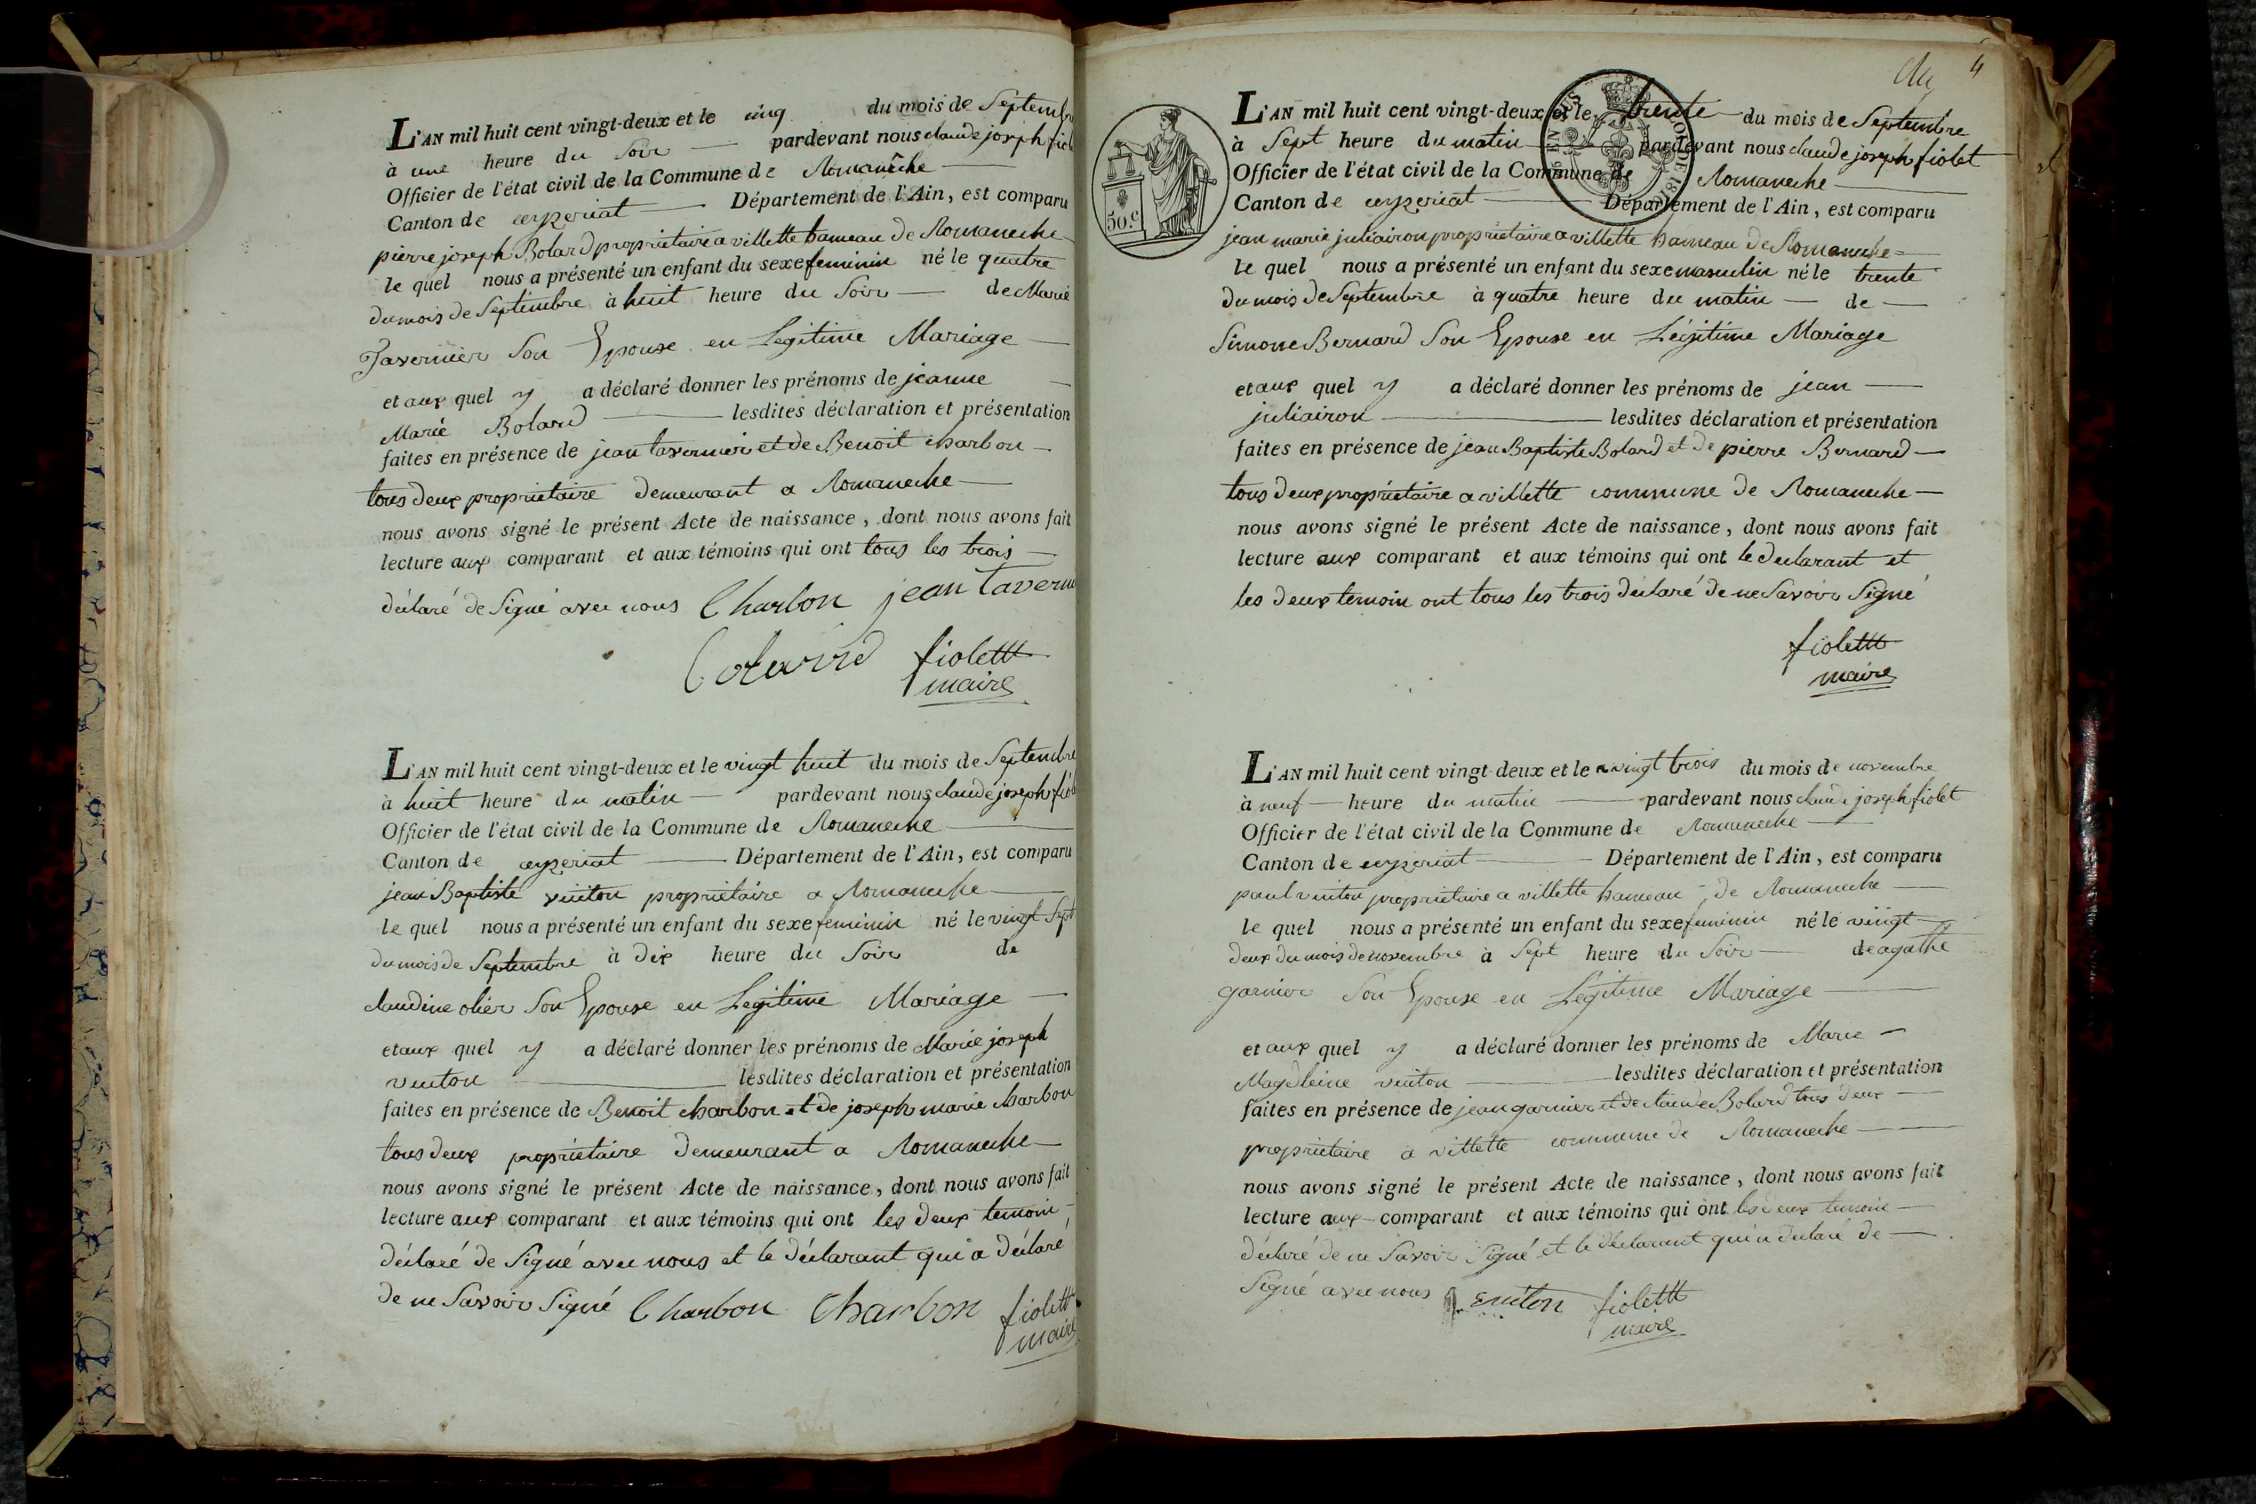 L'AN mil huit cent vingt-deux et le cinq du mois de Septembre
à une heure du Soir pardevant nous claude joseph fiol
Officier de l'état civil de la Commune de Romaneche
Canton de ceyzeriat Département de l'Ain, est comparu
pierre joseph Bolard proprietaire a villette hameau de Romaneche
le quel nous a présenté un enfant du sexe feminin né le quatre
du mois de Septembre à huit heure du Soir de Marie
Tavernier Son Epouse en Legitime Mariage
et aux quel y a déclaré donner les prénoms de jeanne
Marie Bolard lesdites déclaration et présentation
faites en présence de jean tavernier et de Benoit charbon
tous deux proprietaire demeurant a Romaneche
nous avons signé le présent Acte de naissance, dont nous avons fait
lecture aux comparant et aux témoins qui ont tous les trois
déclaré de Signé avec nous Charbon jean taverni
fiolettt
maire
L'AN mil huit cent vingt-deux et le vingt huit du mois de Septembre
à huit heure du matin pardevant nous claude joseph fiol
Officier de l'état civil de la Commune de Romaneche
Canton de ceyzeriat Département de l'Ain, est comparu
jean Baptiste vuiton proprietaire a Romaneche
le quel nous a présenté un enfant du sexe feminin né le vingt Sept
du mois de Septembre à dix heure du Soir de
claudine olier Son Epouse en Legitime Mariage
et aux quel y a déclaré donner les prénoms de Marie joseph
vuiton lesdites déclaration et présentation
faites en présence de Benoit charbon et de joseph marie charbon
tous deux proprietaire demeurant a Romaneche
nous avons signé le présent Acte de naissance, dont nous avons fait
lecture aux comparant et aux témoins qui ont les deux temoin
déclaré de Signé avec nous et le déclarant qui a déclaré
de ne Savoir Signé Charbon Charbon fiolett
maire
4
50.c
L'AN mil huit cent vingt-deux et le trente du mois de Septembre
à Sept heure du matin pardevant nous claude joseph fiolet
Officier de l'état civil de la Commune de Romaneche
Canton de ceyzeriat Département de l'Ain, est comparu
jean marie juliairon proprietaire a villette hameau de Romaneche
le quel nous a présenté un enfant du sexe masculin né le trente
du mois de Septembre à quatre heure du matin de
Simone Bernard Son Epouse en Légitime Mariage
et aux quel y a déclaré donner les prénoms de jean
juliairon lesdites déclaration et présentation
faites en présence de jean Baptiste Bolard et de pierre Bernard
tous deux proprietaire a villette commune de Romaneche
nous avons signé le présent Acte de naissance, dont nous avons fait
lecture aux comparant et aux témoins qui ont le declarant et
les deux temoin ont tous les trois déclaré de ne Savoir Signé
fiolettt
maire
L'AN mil huit cent vingt-deux et le vingt trois du mois de novembre
à neuf heure du matin pardevant nous claude joseph fiolet
Officier de l'état civil de la Commune de Romaneche
Canton de ceyzeriat Département de l'Ain, est comparu
paul vuiton proprietaire a villette hameau de Romaneche
le quel nous a présenté un enfant du sexe feminin né le vingt
deux du mois de novembre à Sept heure du Soir de agathe
garnier Son Epouse en Légitime Mariage
et aux quel y a déclaré donner les prénoms de Marie
Magdleine vuiton lesdites déclaration et présentation
faites en présence de jean garnier et de claude Bolard tous deux
proprietaire a villette commune de Romaneche
nous avons signé le présent Acte de naissance, dont nous avons fait
lecture aux comparant et aux témoins qui ont les deux temoin
déclaré de ne Savoir Signé et le déclarant qui a déclaré de
Signé avec nous vuiton fiolettt
maire